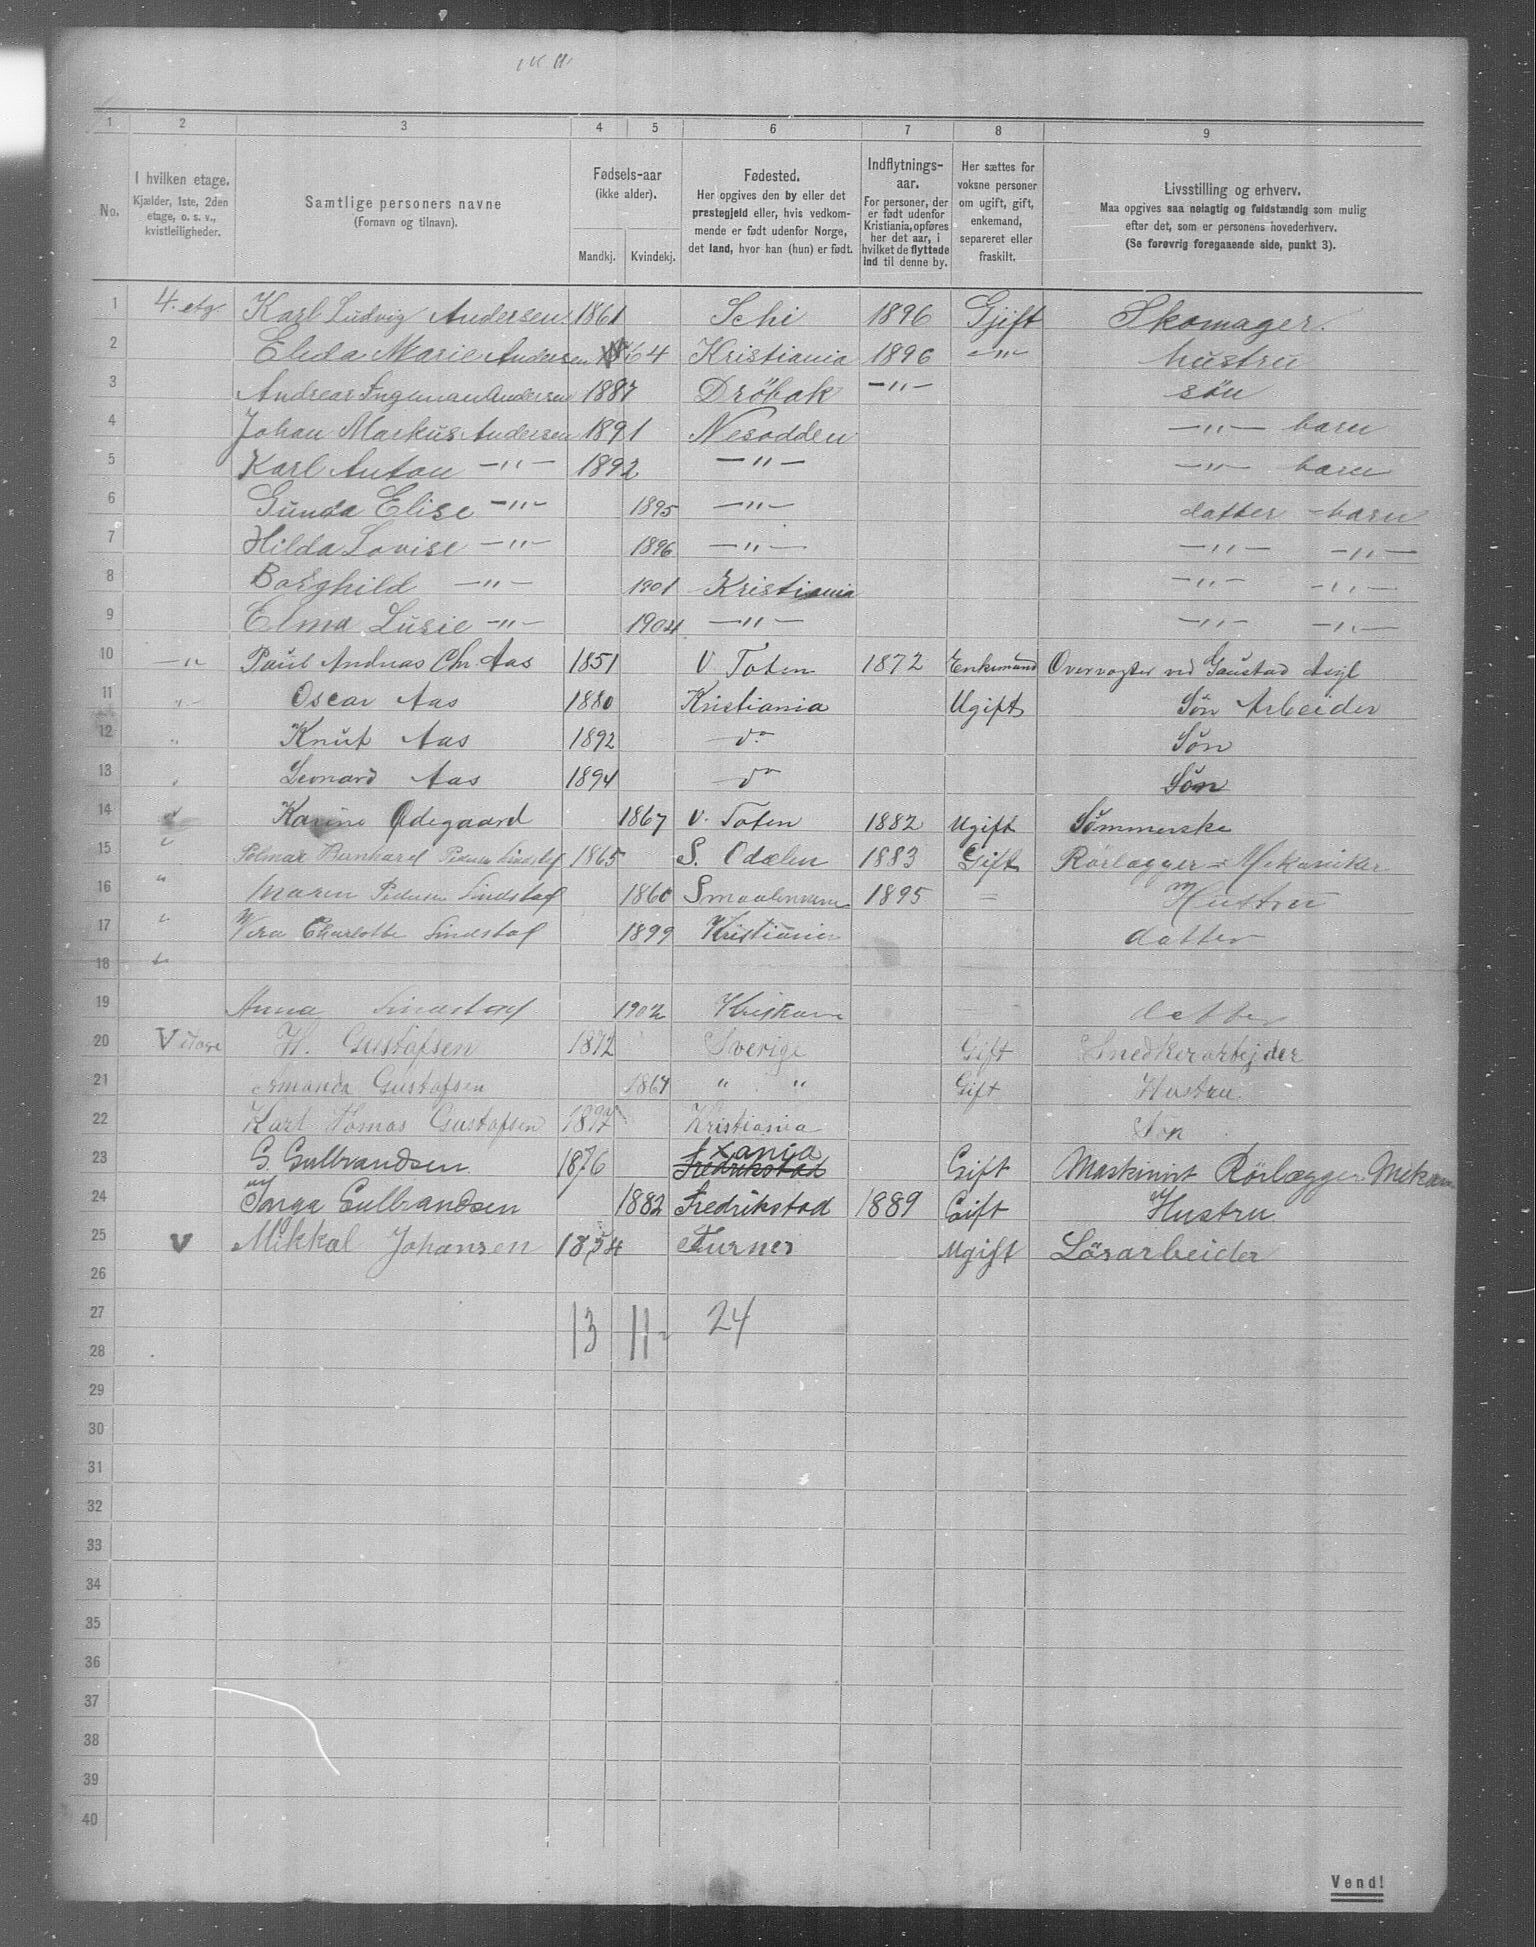 1 2 3 4 5 6 7 8 9
No.
I hvilken etage.
Kjælder, 1ste, 2den
etage, o. s. v.,
kvistleiligheder.
Samtlige personers navne
(Fornavn og tilnavn).
Fødsels-aar
(ikke alder).
Mandkj. Kvindekj.
Fødested.
Her opgives den by eller det
prestegjeld eller, hvis vedkom-
mende er født udenfor Norge,
det land, hvor han (hun) er født.
Indflytnings-
aar.
For personer, der
er født udenfor
Kristiania, opføres
her det aar, i
hvilket de flyttede
ind til denne by.
Her sættes for
voksne personer
om ugift, gift,
enkemand,
separeret eller
fraskilt.
Livsstilling og erhverv.
Maa opgives saa nøiagtig og fuldstændig som mulig
efter det, som er personens hovederhverv.
(Se forøvrig foregaaende side, punkt 3).
1 4. etg. Karl Ludvig Andersen 1861 Schi 1896 Gjift Skomager.
2 Elida Marie Andersen 64 Kristiania 1896 -"- hustru
3 Andreas Ingeman Andersen 1887 Dröbak -"- sön
4 Johan Markus Andersen 1891 Nesodden -"- barn
5 Karl Anton -"- 1892 -"- -"- barn
6 Gunda Elise -"- 1895 -"- datter -barn
7 Hilda Lovise -"- 1896 -"- -"- -"-
8 Borghild -"- 1901 Kristiania -"- -"-
9 Elma Lusie -"- 1904 -"- -"- -"-
10 -"- Paul Andreas Chr. Aas 1851 V Toten 1872 Enkemand Overvogter ved Gaustad Asyl
11 -"- Oscar Aas 1880 Kristiania Ugift Sön Arbeider
12 " Knut Aas 1892 do Sön
13 Leonard Aas 1894 do Sön
14 Karine Ødegaard 1867 V. Toten 1882 Ugift Sömmerske
15 " Bernhard Pedersen Lindstøl 1865 S. Odalen 1883 Gift Rörlægger - Mekaniker
16 " Maren Pedersen Lindstøl 1860 Smaalenene 1895 = Hustru
17 " Vera Charlotte Lindstøl 1899 Kristiania datter
18 "
19 Anna Lindstøl 1902 Kristiania datter
20 V etage H. Gustafsen 1872 Sverige Gift Snedkerarbejder
21 Amanda Gustafsen 1867 " " Gift Hustru
22 Karl Tomas Gustafsen 1897 Kristiania Sön
23 G. Gulbrandsen 1876 Xania Fredrikstad Gift Maskinist Rörlægger Mekan
24 Inga Gulbrandsen 1882 Fredrikstad 1889 Gift Hustru
25 V Mikkal Johansen 1854 Furnes Ugift Lösarbeider
26
27 13 11 24
28
29
30
31
32
33
34
35
36
37
38
39
40
Vend!